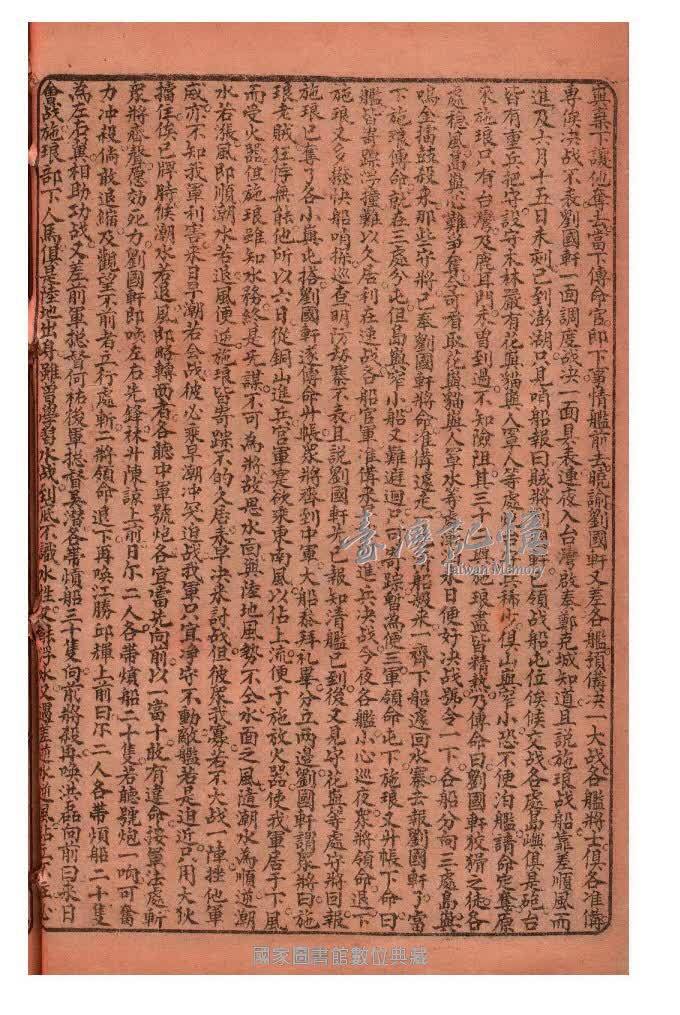 與棄下讓他奪去當下傳命官即下事情艦前去曉諭劉國軒又差各艦預備決一大战各艦將士俱各准備
專俟决战不表劉國軒一面調度战决一面具表連夜入台灣啟奏鄭克城知道且說施琅战船靠差順風而
進及六月十五日未刻已到澎湖只見哨船報曰賊將劉國軒已領战船屯位俟候交战各處島嶼俱是砲台
皆有重兵把守設守木林嚴有花嶼貓嶼人罩人等處台兵稀少俱山嶼窄小恐不便泊艦請命定奪原
來施琅只有台灣及鹿耳門未曾到過不知險阻其三十六嶼施琅盡皆精熟乃傳命曰劉國軒狡猾之徒各
處穩風島嶼必難爭奪今可看取花嶼貓嶼人罩水等處水日便好决战號令一下各船分向三處島嶼
鳴金擂鼓殺來那些守將已奉劉國軒將命准備退走船殺來一齊下船遽回水寨去報劉國軒了當
下施琅傳命就在三處分屯但島嶼窄小船又难避迴只可寄踪暫為便三軍領命屯下施琅又升帳下命曰
艦皆寄踪浮撞難以久居利在速战各船官軍准備來進兵决战今夜各艦小心巡夜眾將領命退下
施琅又多撥快船哨探巡查明防劫寨不表且說劉國軒先已報知清艦已到後又見守花嶼等處守將回報
施琅已奪了各小嶼屯搭劉國軒遂傳命升帳眾將齊到中軍大船恭拜礼畢分立兩邊劉國軒謂眾將曰施
琅老賊狂悖無能他所以六日從銅山進兵官軍寔欲來東南風以佔上流便于施放火器使我軍居于下風
而受火器但施琅雖知水務終是先謀不可為將故思水面與陸地風势不仝水面之風隨潮水為順逆潮
水若漲風即順潮水若退風便逆施琅皆寄踪不的久居來早决來討战但彼眾我寡若不大战一陣挫他軍
威亦不知我軍利害來日早潮若会战彼必乘早潮冲突迫战我軍只宜净守不動敵艦若是迫近只用大伙
擋住俟已牌時候潮水若退風即略轉西看各聽中軍號炮各宜當先向前以一當十敢有違命按軍法處斬
眾將齊聲愿効死力劉國軒即喚左右先鋒林升陳諒上前曰尔二人各帶熕船二十隻若聽號炮一响可奮
力冲殺倘敢退縮及觀望不前者立行處斬二將領命退下再喚江勝邱輝上前曰尔二人各帶熕船二十隻
為左右翼相助功战又差前軍摠督何祐後軍摠督吳潜各帶熕船三十隻向前將殺再喚洪磊向前曰來日
會战施琅部下人馬俱是陸地出身雖曾學對水战到底不識水性
國家圖書館數位典藏
臺灣記憶
Taiwan Memory